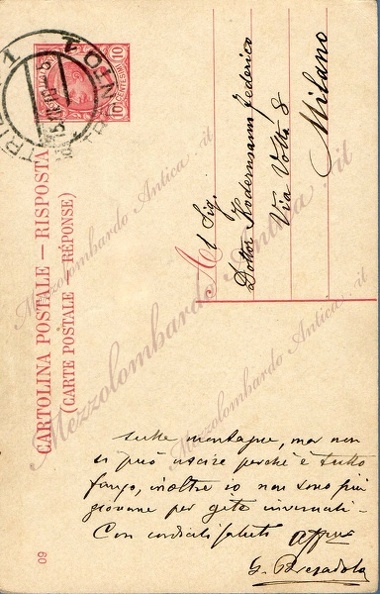 CARTOLINA POSTALE – RISPOSTA
(CARTE POSTALE – RÉPONSE)
10 CENTESIMI 10
TRENTO 1
Al Sig.
Dottor Kodermann Federico
Via Volta 8
Milano
sulle montagne, ma non
si può uscire perchè è tutto
fango, inoltre io non sono più
giovane per gite invernali –
Con cordiali saluti affmo
G. Bresadola
09
Mezzolombardo Antica .it
Mezzolombardo Antica .it
Mezzolombardo Antica .it